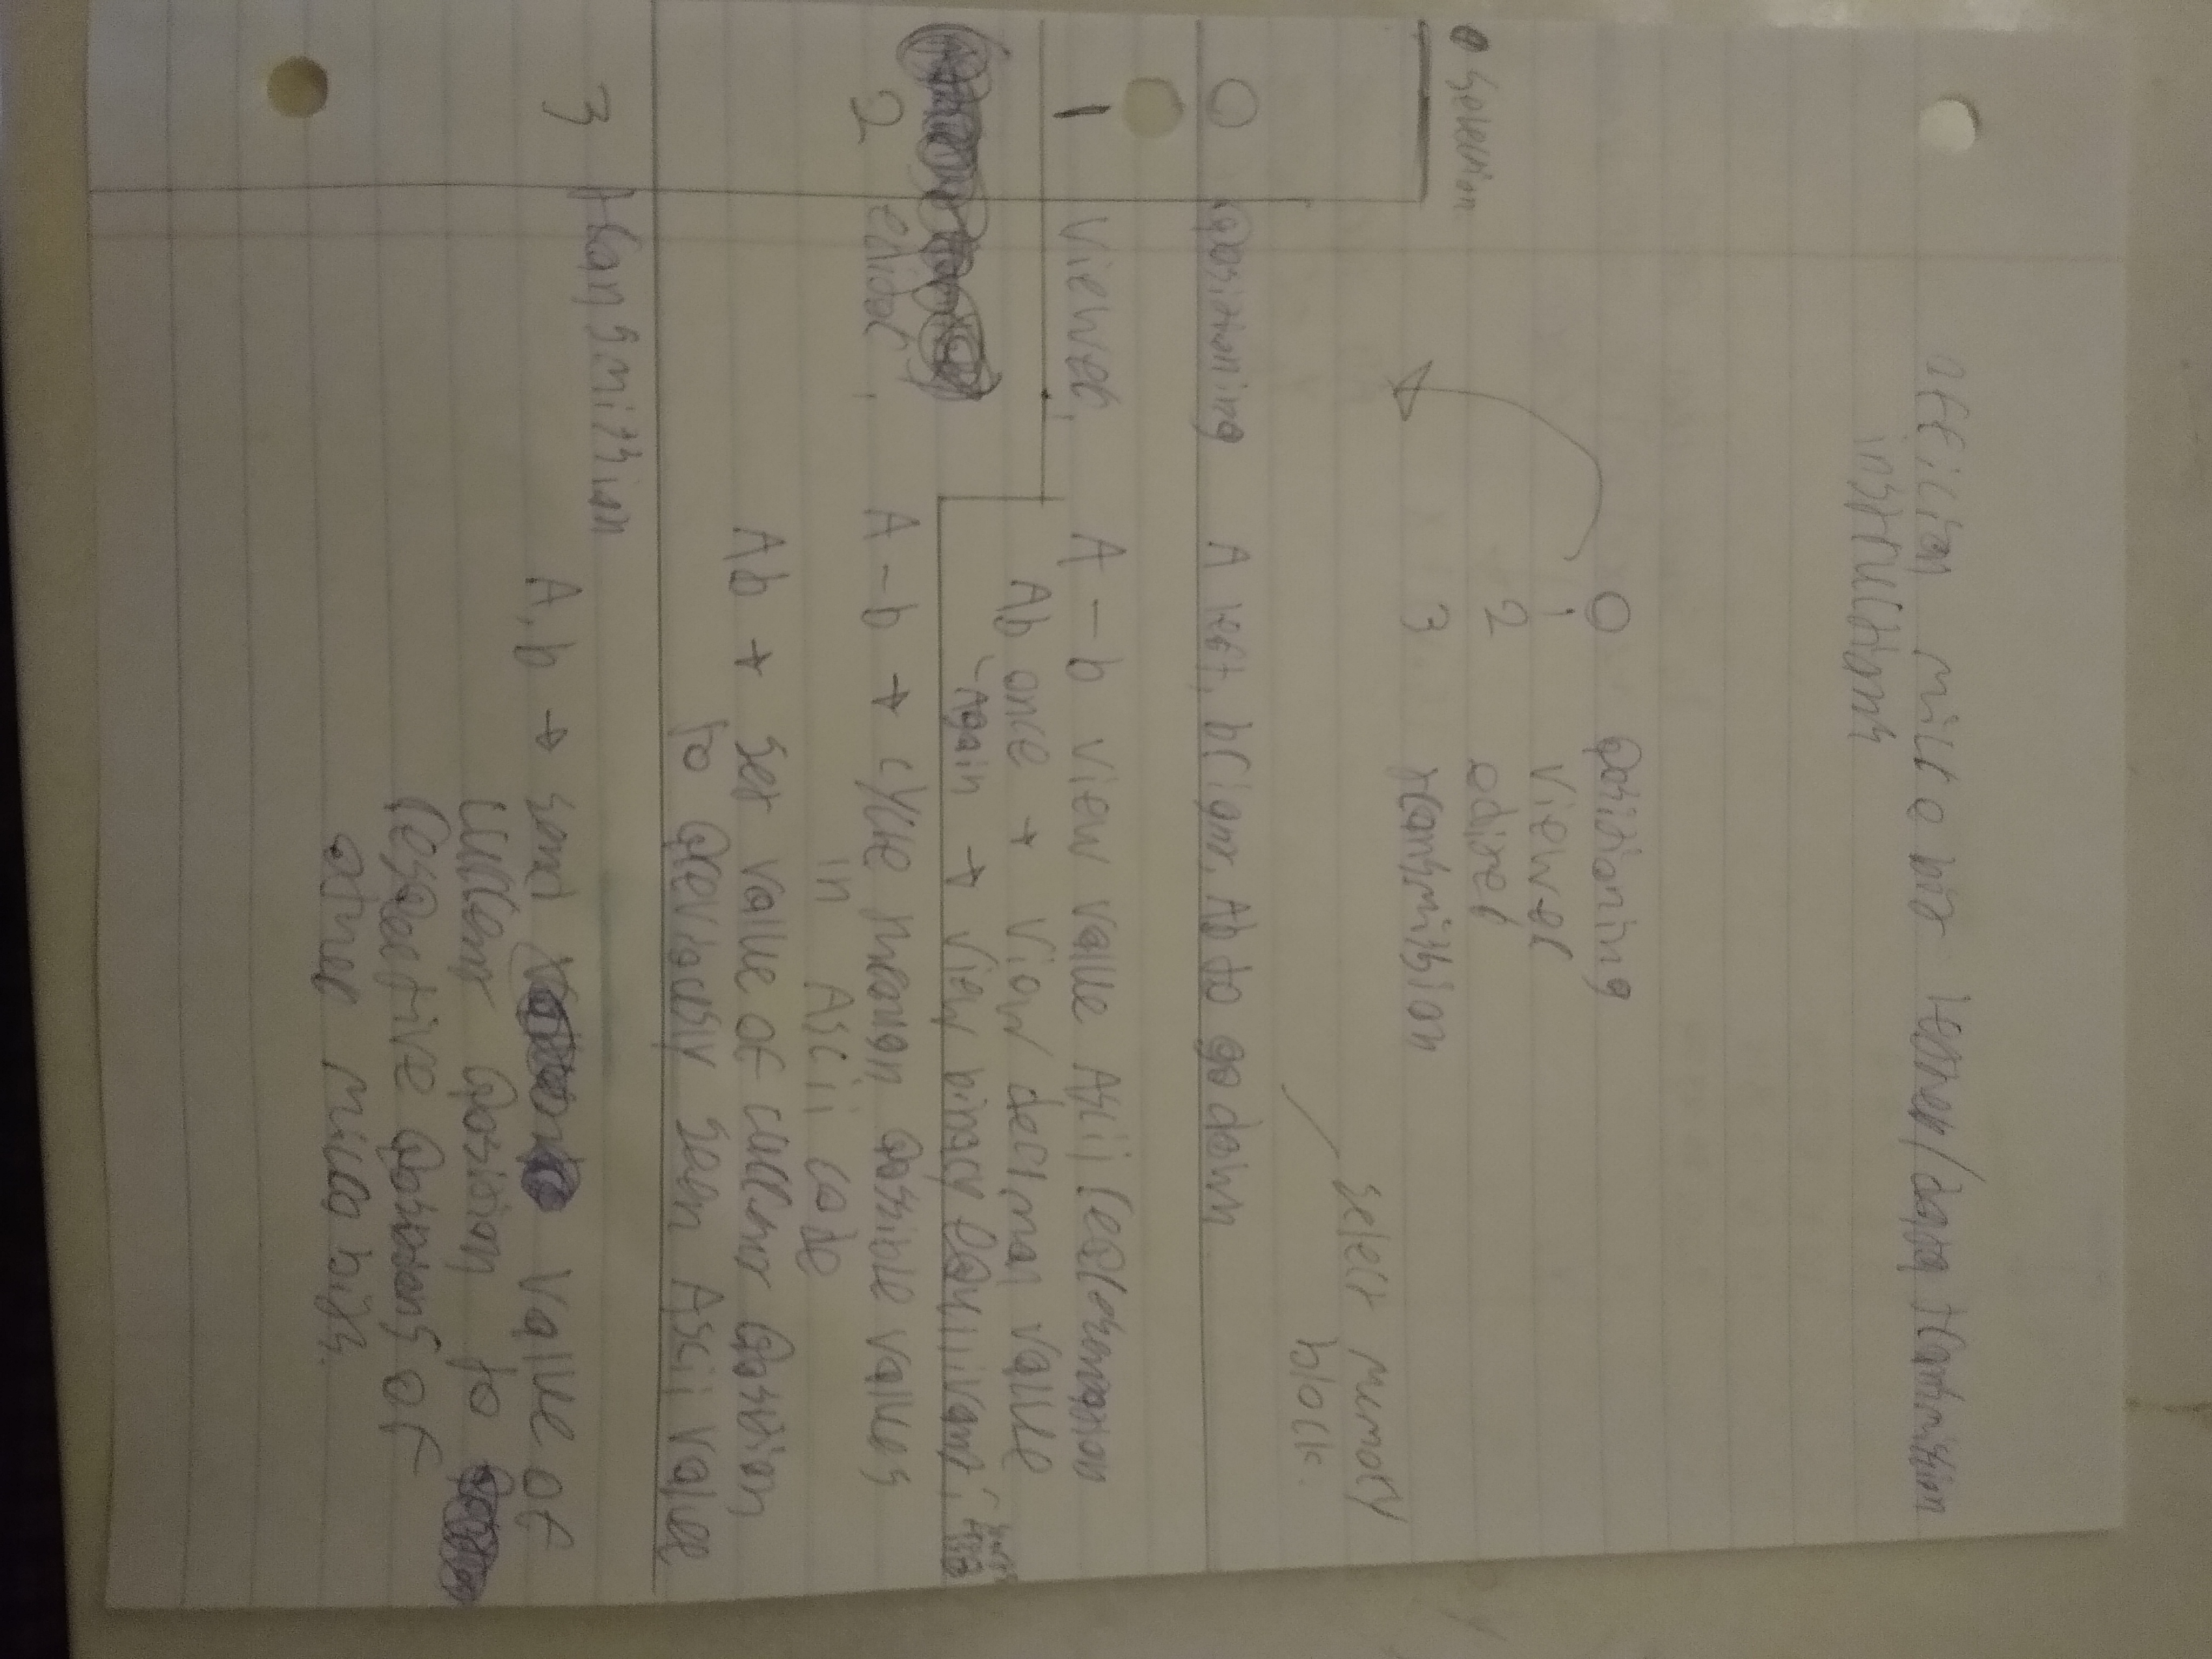 Official micro bit tether/data tranmition
instructions
0 positioning
1 viewer
2 editer
3 transmission
select memory
block.
Selection
0 positioning A left, b right. Ab to go down
1 Viewer, A - b view value Ascii representation
Ab once → View decimal value
again → View binary equilivant,
2 editor, A - b → cycle through possible values
in Ascii code
Ab → set value of current position
to previously seen Ascii value
3 transmition
A, b → send value of
current position to
respective positions of
other micro bits.